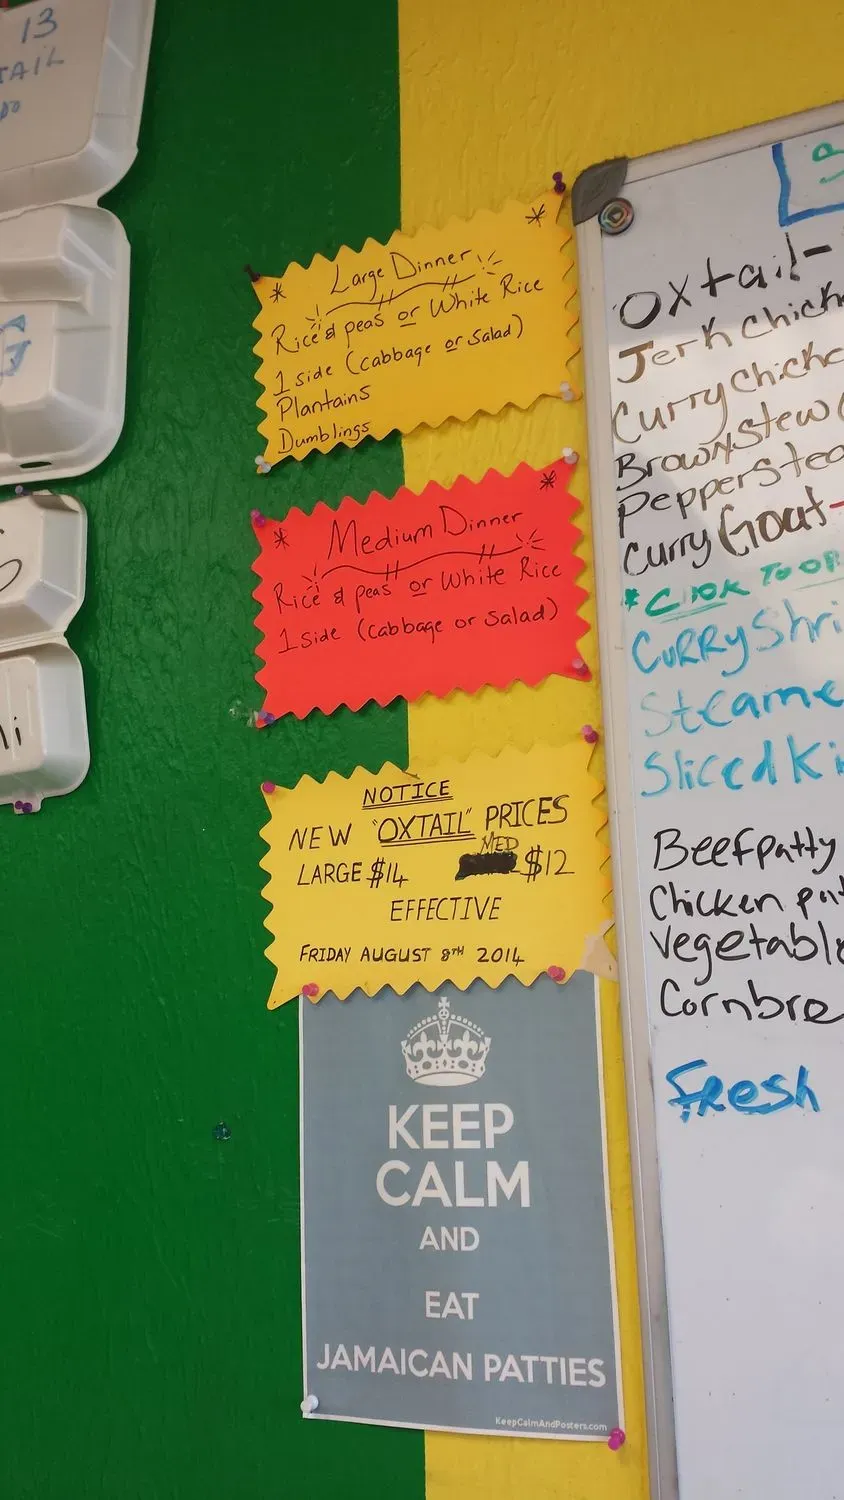 13
* Large Dinner *
Rice & peas or White Rice
1 side (cabbage or Salad)
Plantains
Dumblings
* Medium Dinner *
Rice & peas or White Rice
1 Side (Cabbage or Salad)
NOTICE
NEW "OXTAIL" PRICES
MED
LARGE $14 $12
EFFECTIVE
FRIDAY AUGUST 8TH 2014
KEEP
CALM
AND
EAT
JAMAICAN PATTIES
KeepCalmAndPosters.com
Oxtail-
Jerk
Curry
Brown Stew
Pepper
Curry Goat-
* COOK TO
CURRY
Sliced
Beef patty
Chicken
Fresh